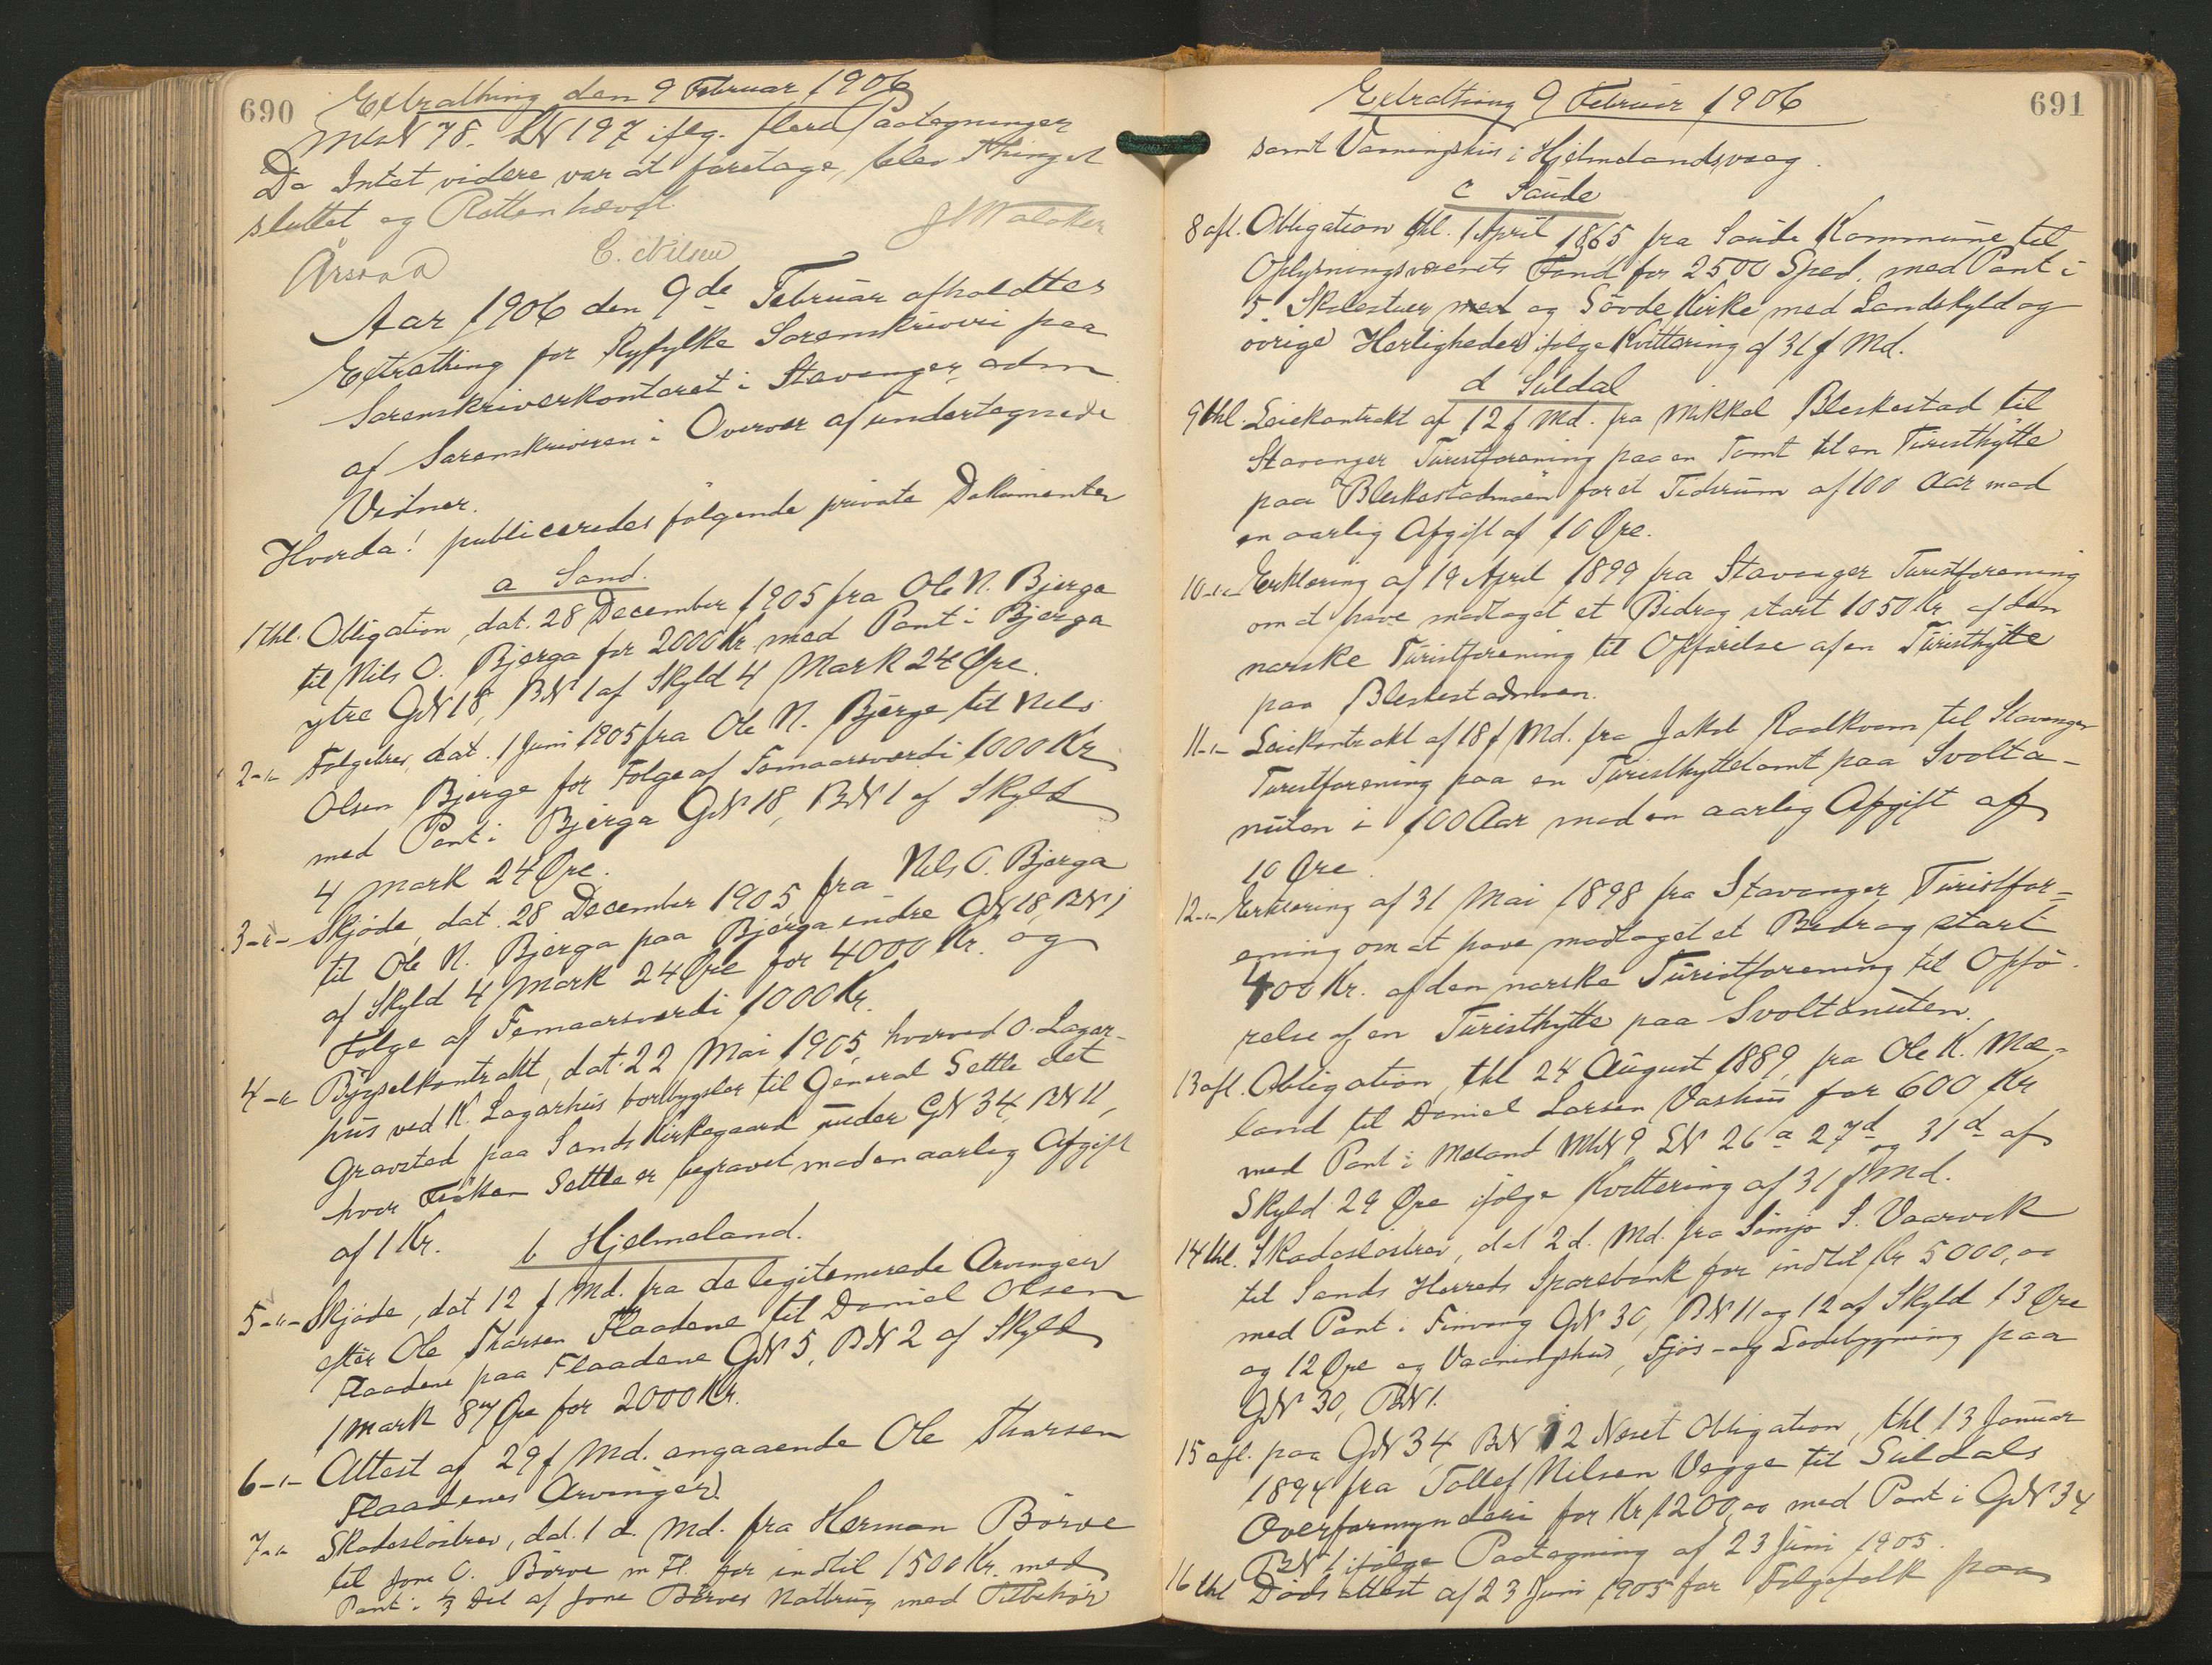 690
Extrathing den 9 Februar 1906
MtrN 78. LN 197 iflg. flere Paategninger
Da Intet videre var at foretage, blev Thinget
sluttet og Retten hævet.
J Walaker
C. Nilsen
Aar 1906 den 9de Februar afholdtes
Extrathing for Ryfylke Sorenskriveri paa
Sorenskriverkontoret i Stavanger, adm
af Sorenskriveren i Overvær af undertegnede
Vidner.
Hvorda! publiceredes følgende private Dokumenter
a Sand.
1 thl. Obligation, dat. 28 December 1905 fra Ole N. Bjerga
til Nils O. Bjerga for 2000 Kr. med Pant i Bjerga
ytre GN 18, BN 1 af Skyld 4 Mark 24 Øre.
2-"- Følgebrev, dat. 1 Juni 1905 fra Ole N. Bjerge til Nels
Olsen Bjerge for Følge af Femaarsværdi 1000 Kr
med Pant i Bjerga GN 18, BN 1 af Skyld
4 Mark 24 Øre.
3-"- Skjøde, dat. 28 December 1905 fra Nils O. Bjerga
til Ole N. Bjerga paa Bjerga indre GN 18, BN 1
af Skyld 4 Mark 24 Øre for 4000 Kr. og
Følge af Femaarsværdi 1000 Kr.
4-"- Bygselkontrakt, dat. 22 Mai 1905, hvorved O. Lagar-
hus ved K. Lagarhus bortbygsler til General Settle det
Gravsted paa Sands Kirkegaard under GN 34, BN 11,
hvor Frøken Settle er begravet, mod en aarlig Afgift
af 1 Kr.
b Hjelmeland.
5-"- Skjøde, dat 12 f Md. fra de legitimerede Arvinger
efter Ole Tharsen Flaadene til Daniel Olsen
Flaadene paa Flaadene GN 5, BN 2 af Skyld
1 Mark 87 Øre for 2000 Kr.
6-"- Attest af 29 f Md. angaaende Ole Tharsen
Flaadenes Arvinger.
7-"- Skadesløsbrev, dat. 1 d. Md. fra Herman Børve
til Jone O. Børve m Fl. for indtil 1500 Kr. med
Pant i 1/3 Del af Jone Børves Notbrug med Tilbehør
691
Extrathing 9 Februar 1906
samt Vaaningshus i Hjelmelandsvaag.
c Saude
8 afl. Obligation thl. 1 April 1865 fra Saude Kommune til
Oplysningsvæsenets Fond for 2500 Sped. med Pant i
5 Skolestuer med og Søvde Kirke med Landskyld og
øvrige Herligheder ifølge Kvittering af 31 f Md.
d Suldal
9 thl. Leiekontrakt af 12 f Md. fra Mikkel Bleskestad til
Stavanger Turistforening paa en Tomt til en Turisthytte
paa "Bleskestadmoen" for et Tidsrum af 100 Aar mod
en aarlig Afgift af 10 Øre.
10-"- Erklæring af 19 April 1899 fra Stavanger Turistforening
om at have modtaget et Bidrag stort 1050 Kr af den
norske Turistforening til Opførelse af en Turisthytte
paa Bleskestadmoen.
11-"- Leiekontrakt af 18 f Md. fra Jakob Roalkvam til Stavanger
Turistforening paa en Turisthyttetomt paa Svolta-
nuten i 100 Aar mod en aarlig Afgift af
10 Øre.
12-"- Erklæring af 31 Mai 1898 fra Stavanger Turistfor=
ening om at have modtaget et Bidrag stort
400 Kr. af den norske Turistforening til Opfø-
relse af en Turisthytte paa Svoltanuten.
13 afl. Obligation, thl 24 August 1889, fra Ole K. Mæ-
land til Daniel Larsen Vashus for 600 Kr
med Pant i Mæland MtrN 9 LN 26a 27d og 31d af
Skyld 29 Øre ifølge Kvittering af 31 f Md.
14 thl. Skadesløsbrev, dat 2 d. Md. fra Simjo S. Vaarvik
til Sands Herreds Sparebank for indtil Kr 5000,00
med Pant i Finvang GN 30, BN 11 og 12 af Skyld 13 Øre
og 12 Øre og Vaaningshus, Fjøs- og Ladebygning paa
GN 30, BN 1.
15 afl. paa GN 34 BN 12 Neset Obligation, thl 13 Januar
1894 fra Tollef Nilsen Vegge til Suldals
Overformynderi for Kr 1200,00 med Pant i GN 34
BN 1 ifølge Paategning af 23 Juni 1905.
16 thl Dødsattest af 23 Juni 1905 for Følgefolk paa